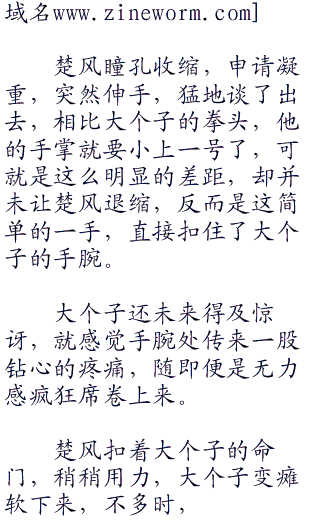 域名www.zineworm.com]
楚风瞳孔收缩，申请凝
重，突然伸手，猛地谈了出
去，相比大个子的拳头，他
的手掌就要小上一号了，可
就是这么明显的差距，却并
未让楚风退缩，反而是这简
单的一手，直接扣住了大个
子的手腕。
大个子还未来得及惊
讶，就感觉手腕处传来一股
钻心的疼痛，随即便是无力
感疯狂席卷上来。
楚风扣着大个子的命
门，稍稍用力，大个子变瘫
软下来，不多时，